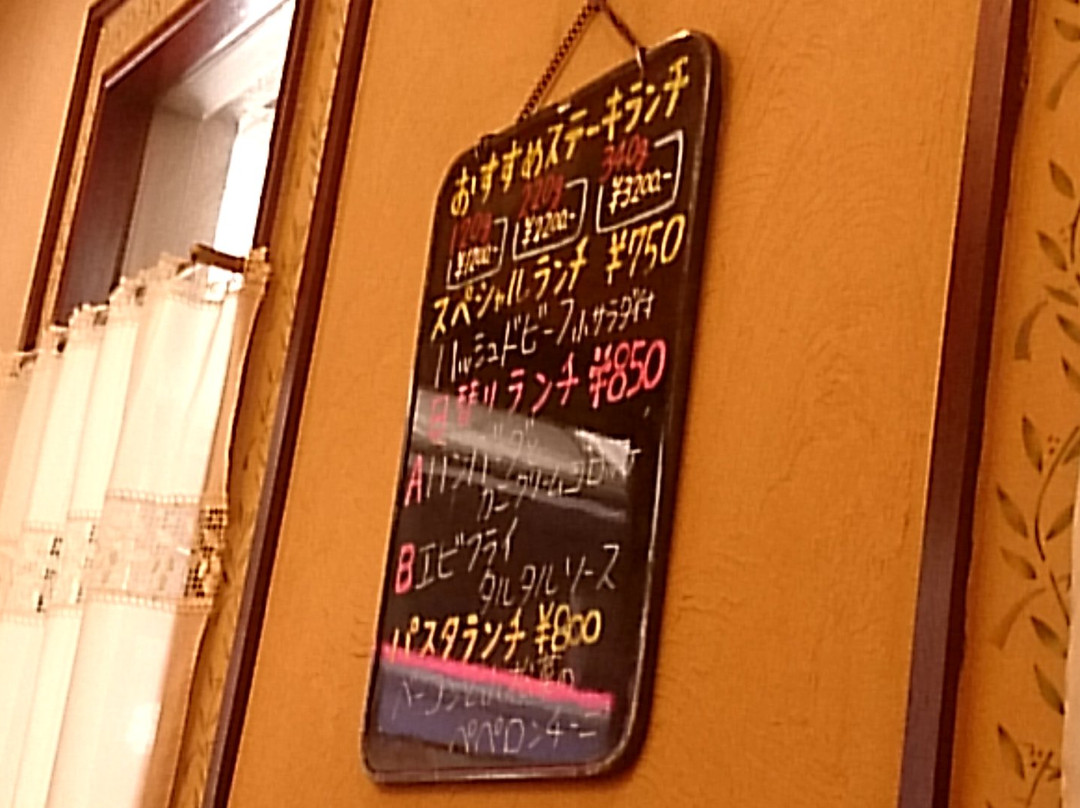 おすすめステーキランチ
120g 220g 340g
¥1200- ¥2200- ¥3200-
スペシャルランチ ¥750
ハッシュドビーフ 小サラダ付
日替りランチ ¥850
Aハンバーグ
カニクリームコロッケ
Bエビフライ
タルタルソース
パスタランチ ¥800
ベーコンと
ペペロンチーニ